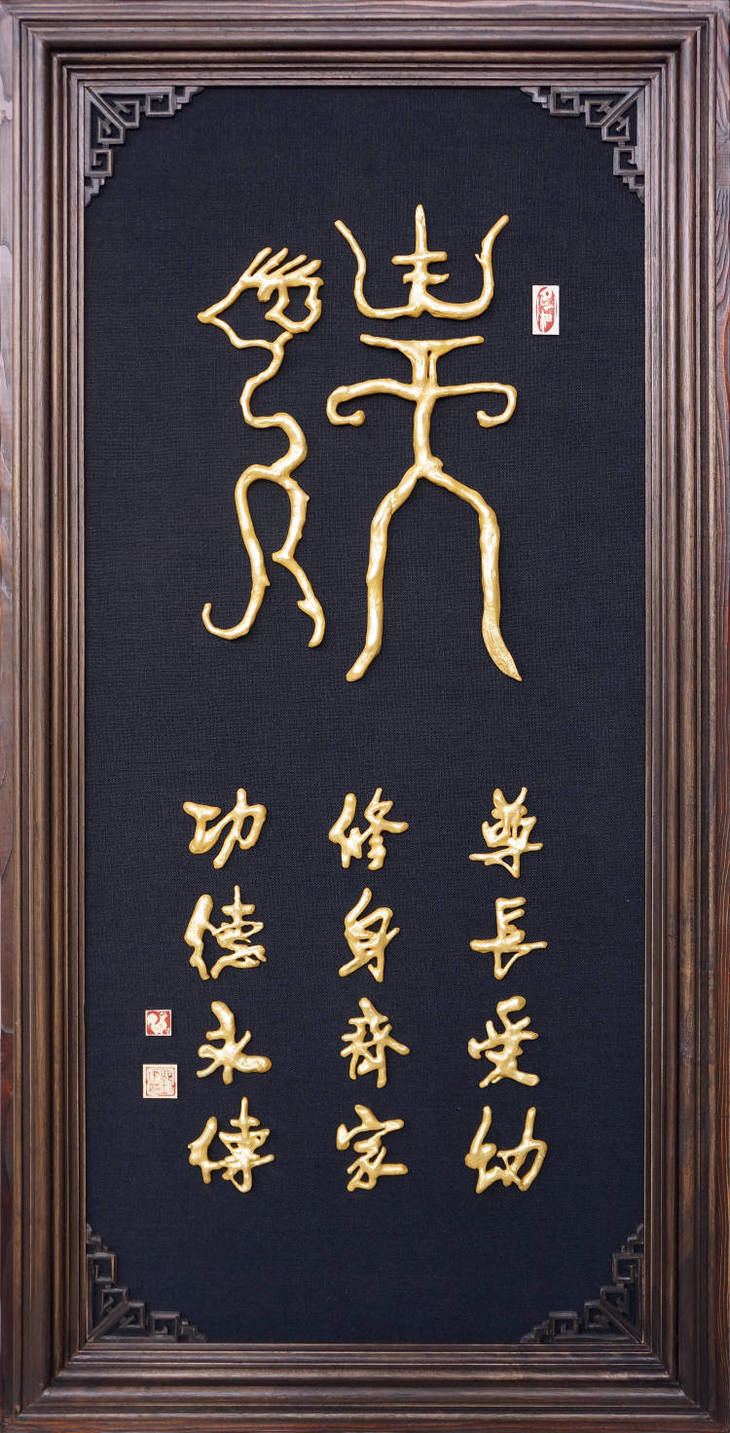 尊長愛幼
修身齊家
功德永傳